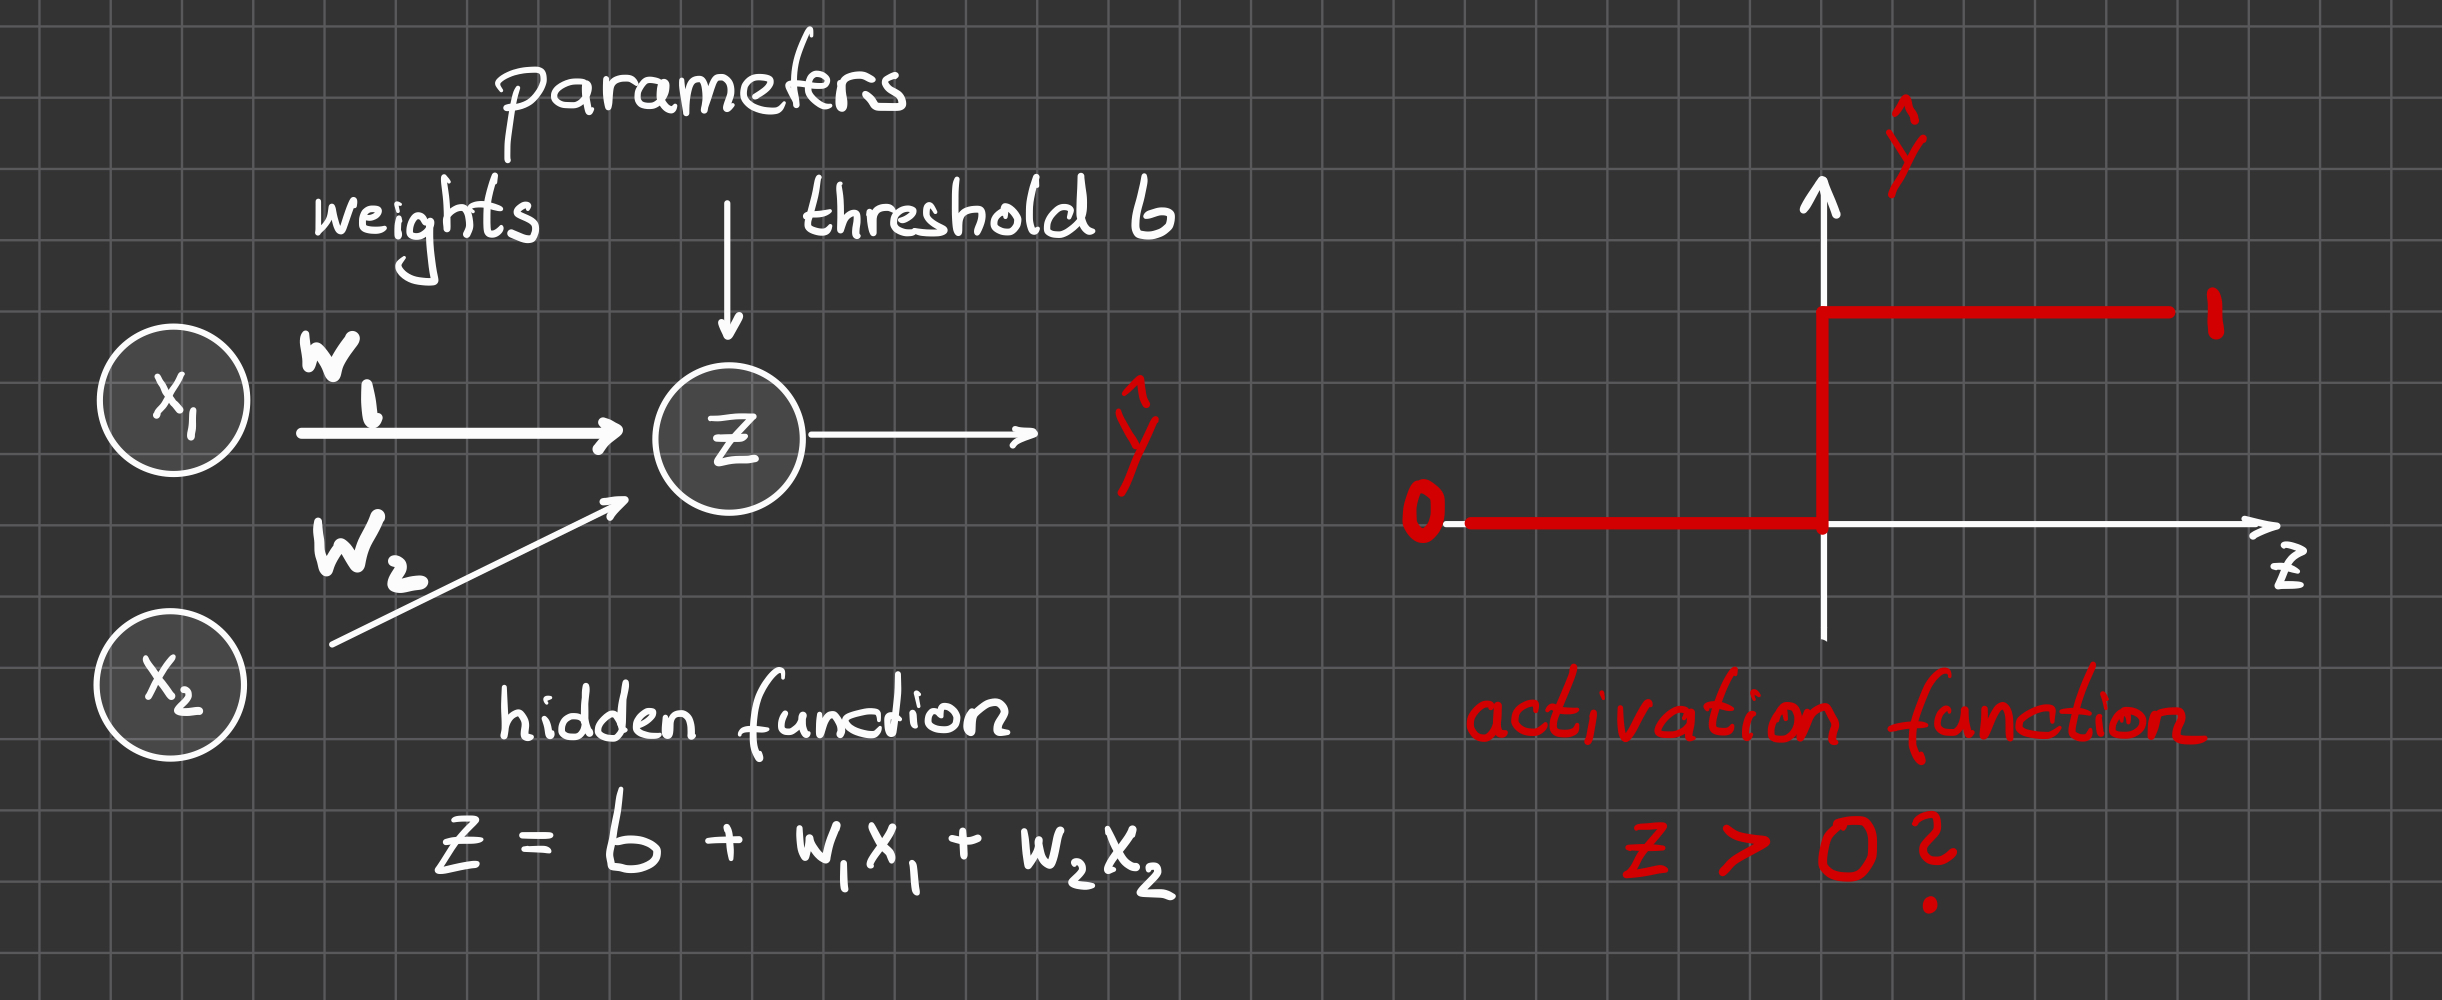 parameters
weights
threshold b
x₁
w₁
z
ŷ
w₂
x₂
hidden function
z = b + w₁x₁ + w₂x₂
ŷ
1
0
z
activation function
z > 0 ?